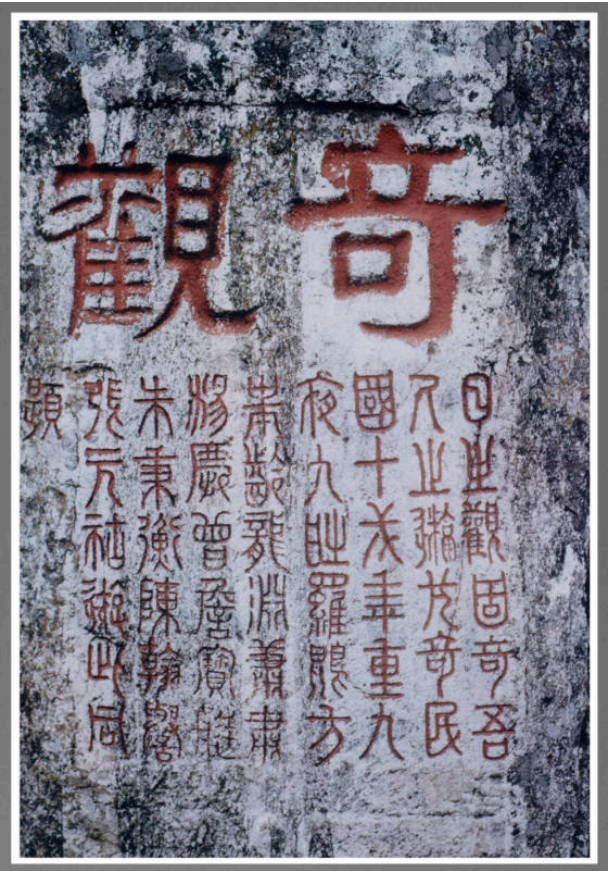 奇觀
日之觀固奇吾
人之尤奇民
國十年重九
夜九時羅鵬方
齡龍淵蕭肅
慶曾詹寶
朱秉衡陳翰譽
張元祜遊此同
題